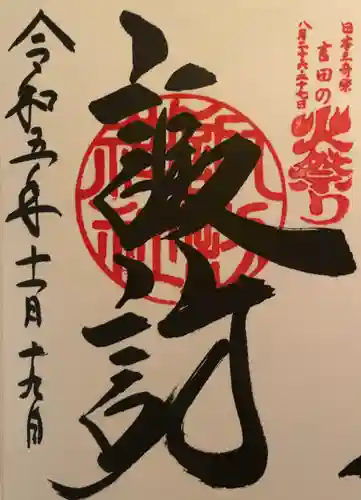 日本三奇祭
吉田の
火祭り
八月二十六、二十七日
諏訪
令和五年十一月十九日